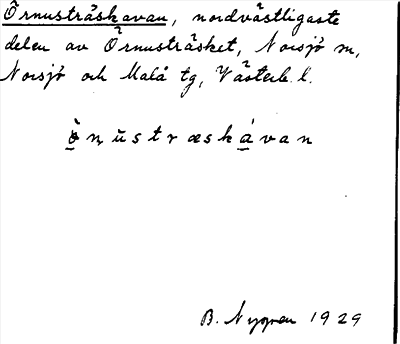 Örnusträskavan, nordvästligaste
delen av Örnusträsket, Norsjö sn,
Norsjö och Malå tg, Västerb. l.
ö̀ n, ŭ s t r æ s k á v a n
B. Nygren 1929